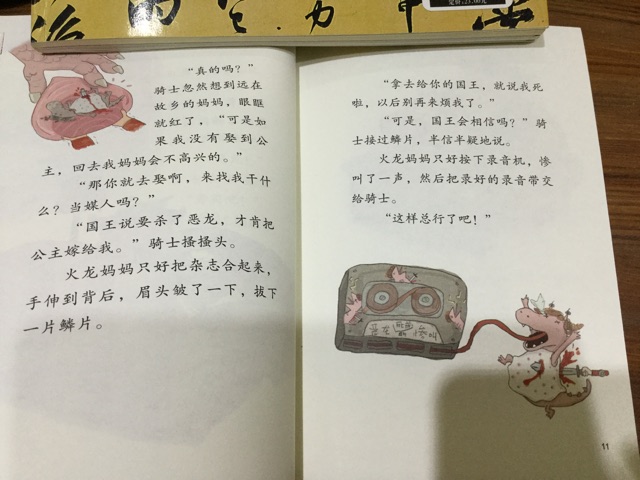 定价:25.00元
“真的吗？”
骑士忽然想到远在
故乡的妈妈，眼眶
就红了，“可是如
果我没有娶到公
主，回去我妈妈会不高兴的。”
“那你就去娶啊，来找我干什
么？当媒人吗？”
“国王说要杀了恶龙，才肯把
公主嫁给我。”骑士搔搔头。
火龙妈妈只好把杂志合起来，
手伸到背后，眉头皱了一下，拔下
一片鳞片。
“拿去给你的国王，就说我死
啦，以后别再来烦我了。”
“可是，国王会相信吗？”骑
士接过鳞片，半信半疑地说。
火龙妈妈只好按下录音机，惨
叫了一声，然后把录好的录音带交
给骑士。
“这样总行了吧！”
恶龙
惨叫
11